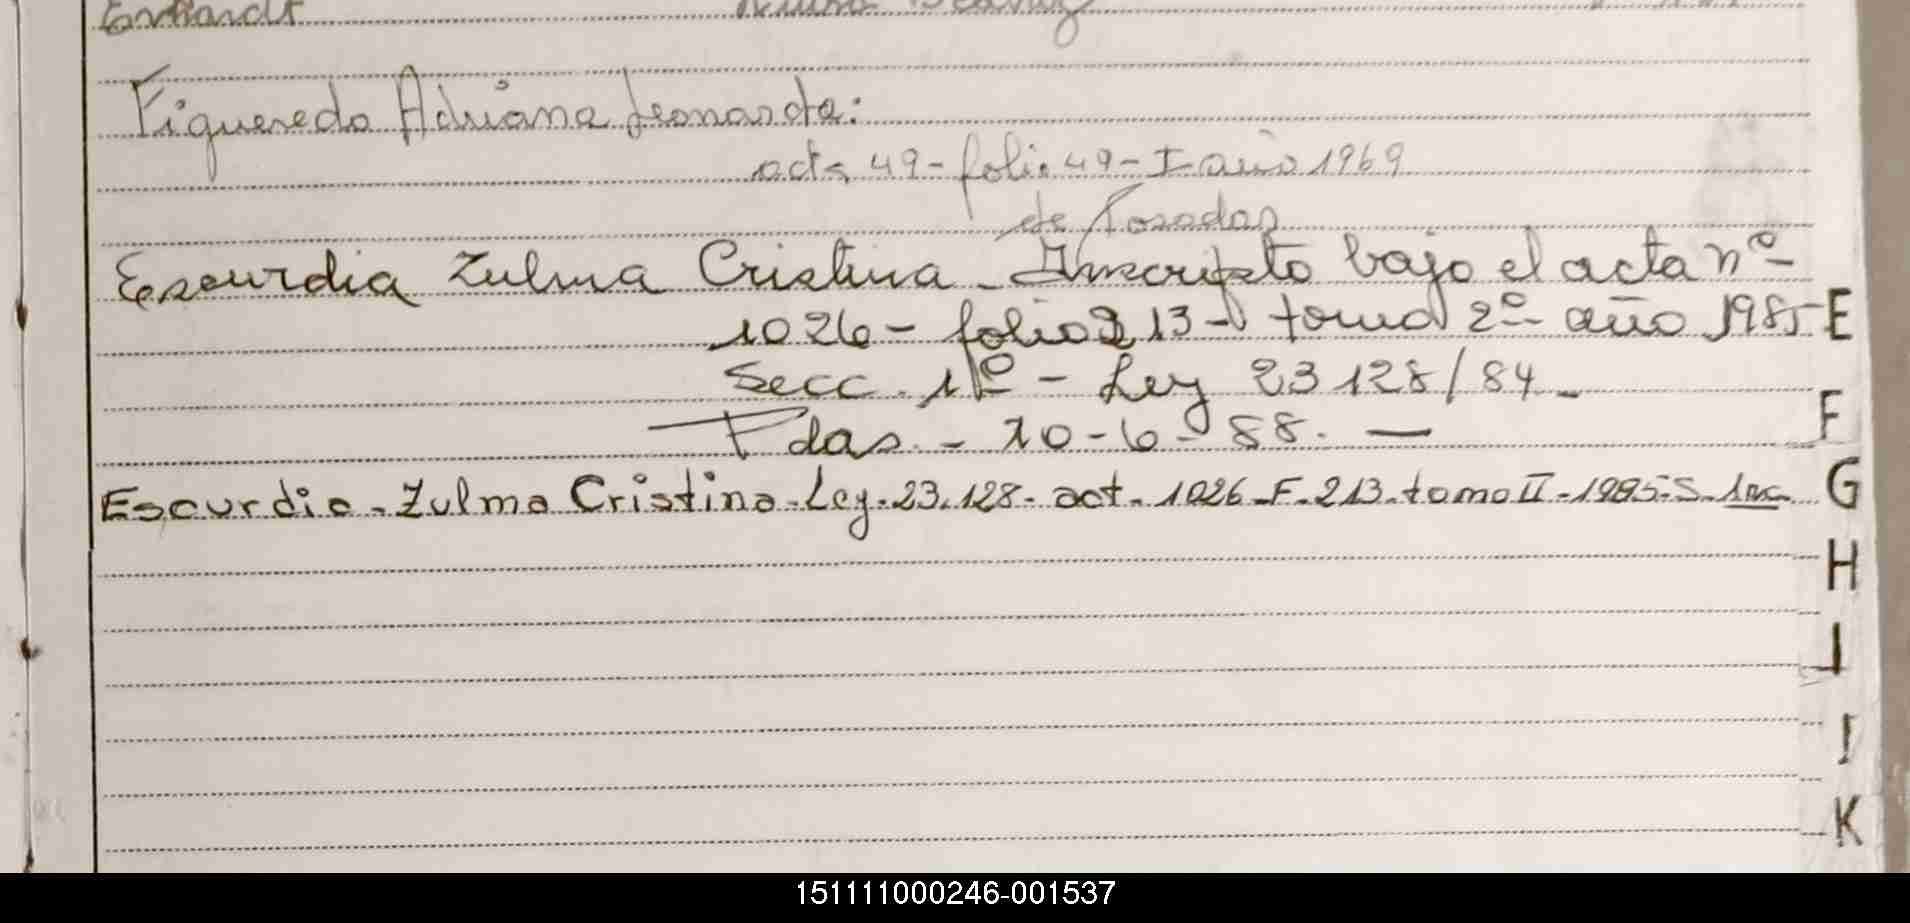 Figueredo Adriana Leonarda:
acta 49-folio 49-I año 1969
de Posadas
Escurdia Zulma Cristina - Inscripto bajo el acta nº
1026 - folio 213 - tomo 2º - año 1985
Secc. 1º - Ley 23128/84 -
Pdas. - 10-6-88. —
Escurdia - Zulma Cristina - Ley. 23.128 - act - 1026 - F - 213 - tomo II - 1985 - S - 1ra
E
F
G
H
I
J
K
151111000246-001537